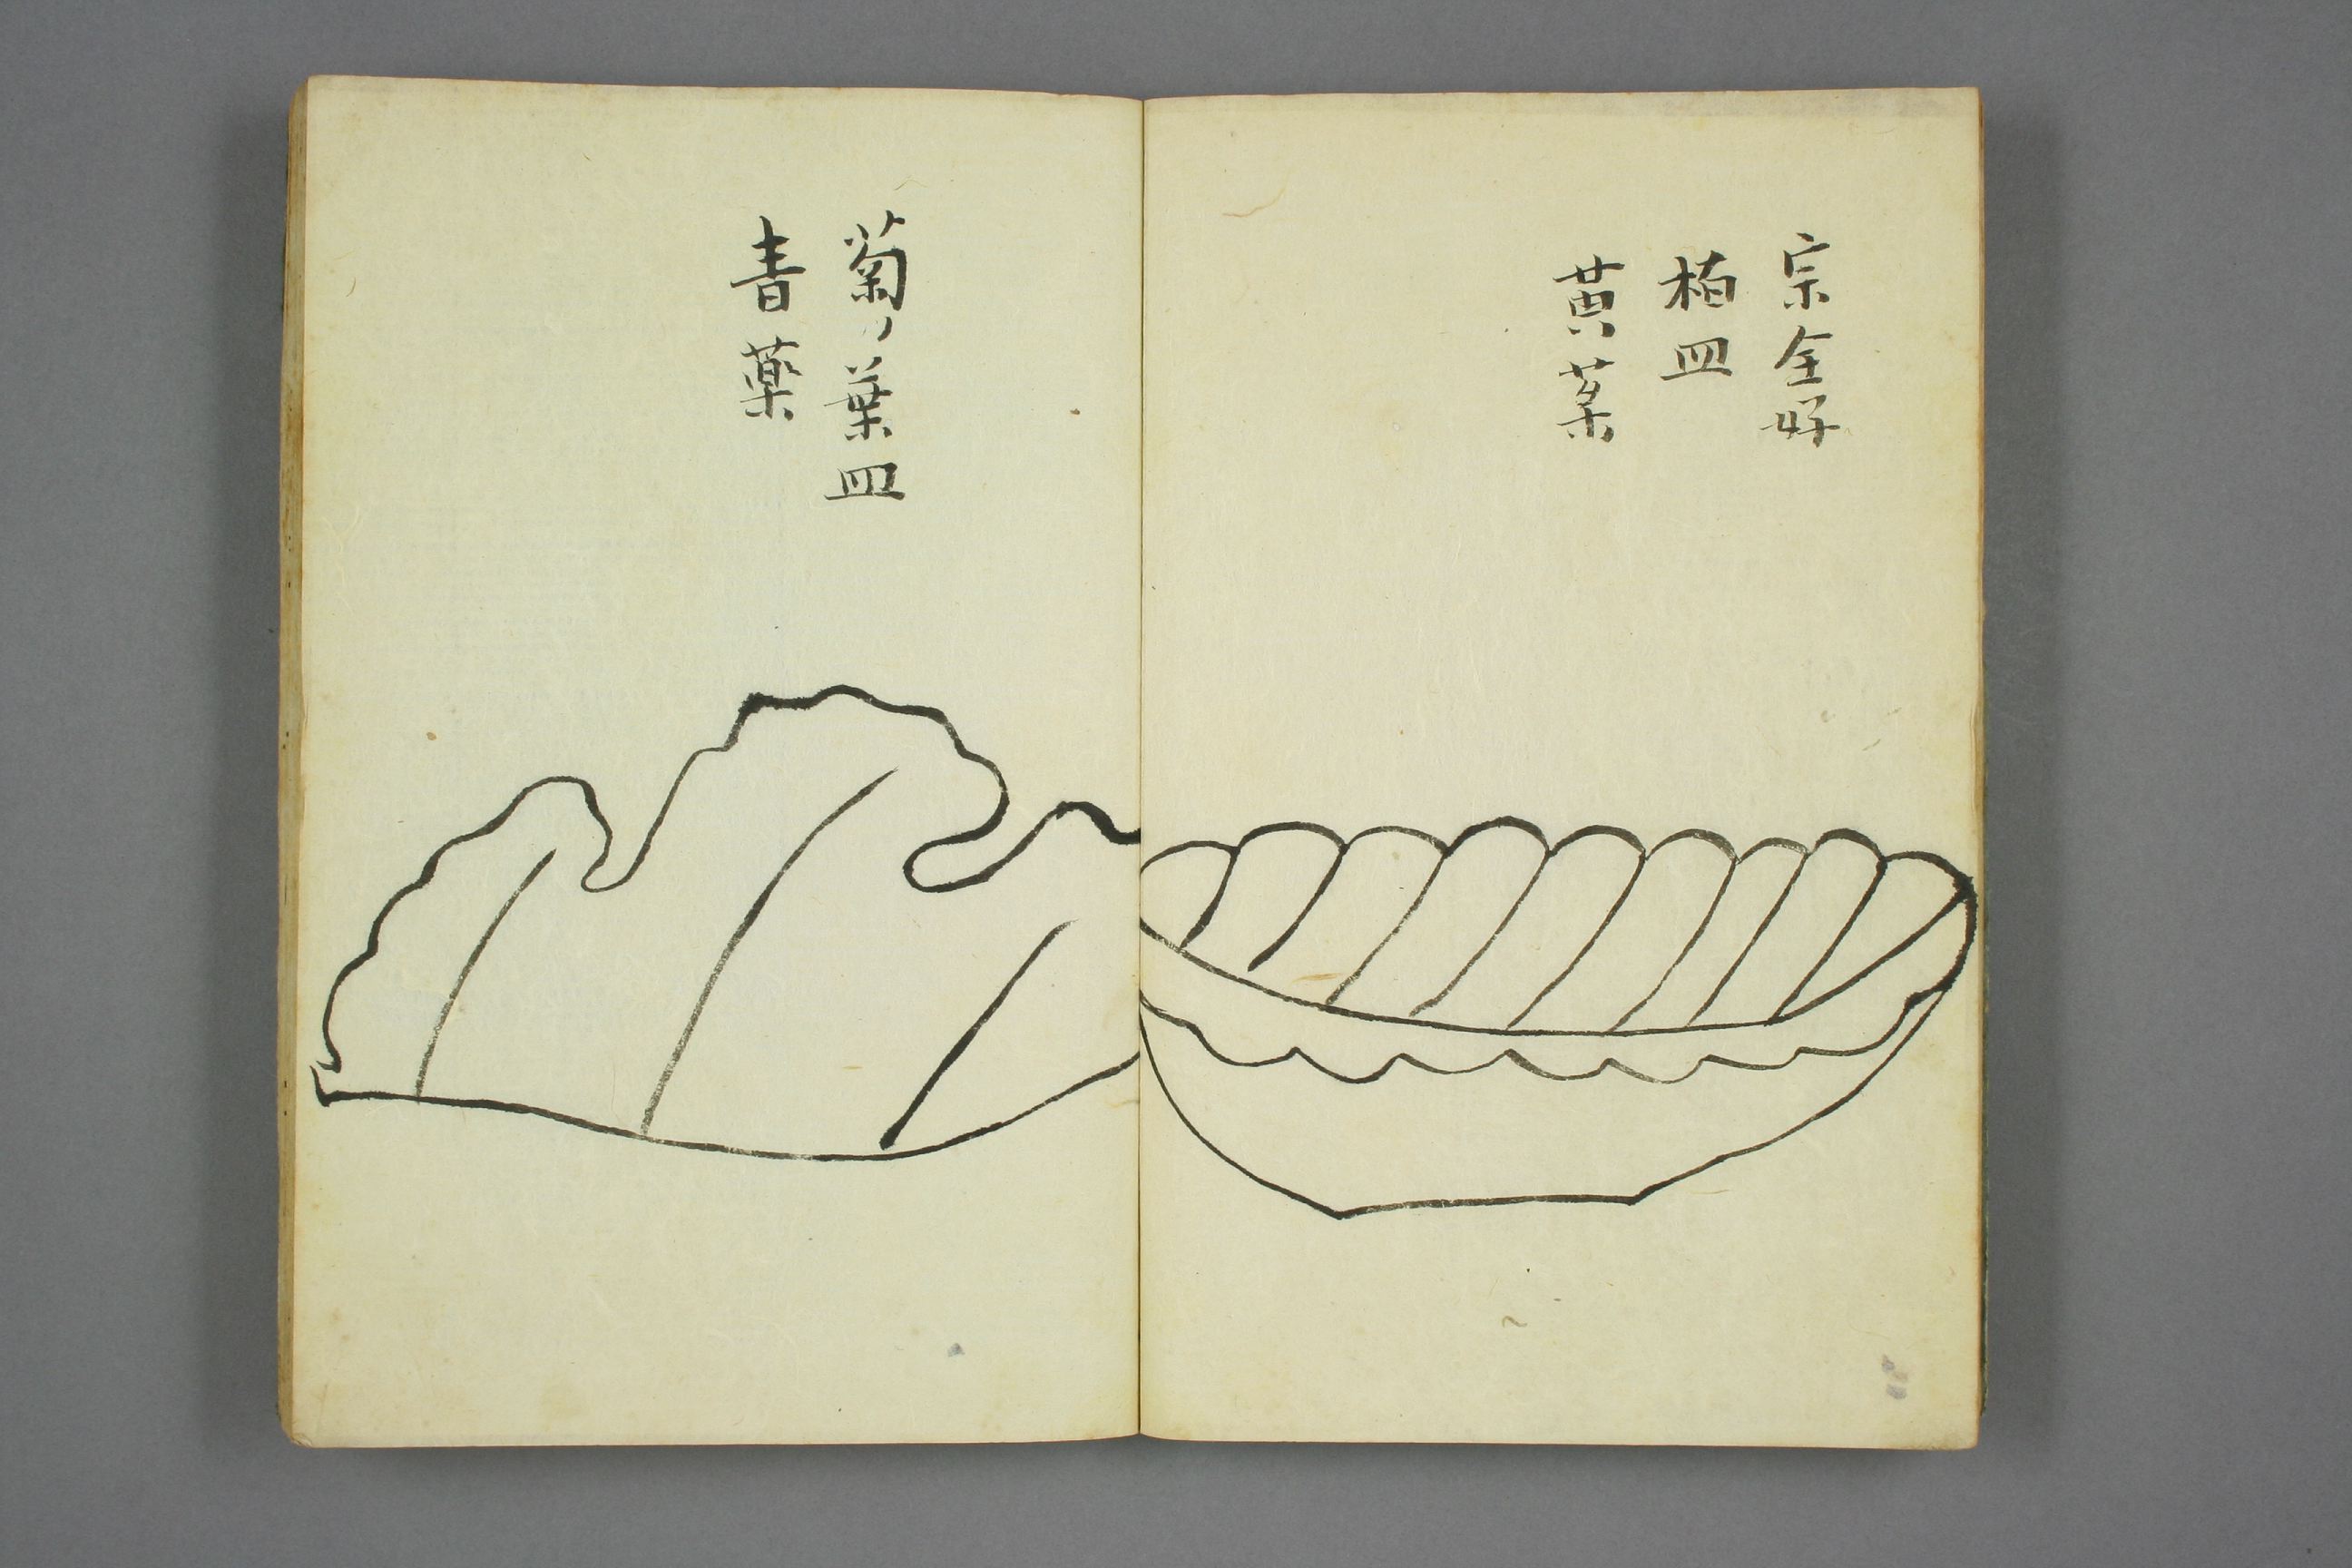 宗全好
栢皿
黄薬
菊ノ葉皿
青薬